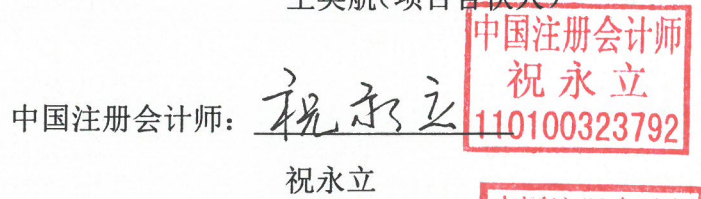 (项目合伙人)
中国注册会计师
祝永立
110100323792
中国注册会计师：祝永立
祝永立